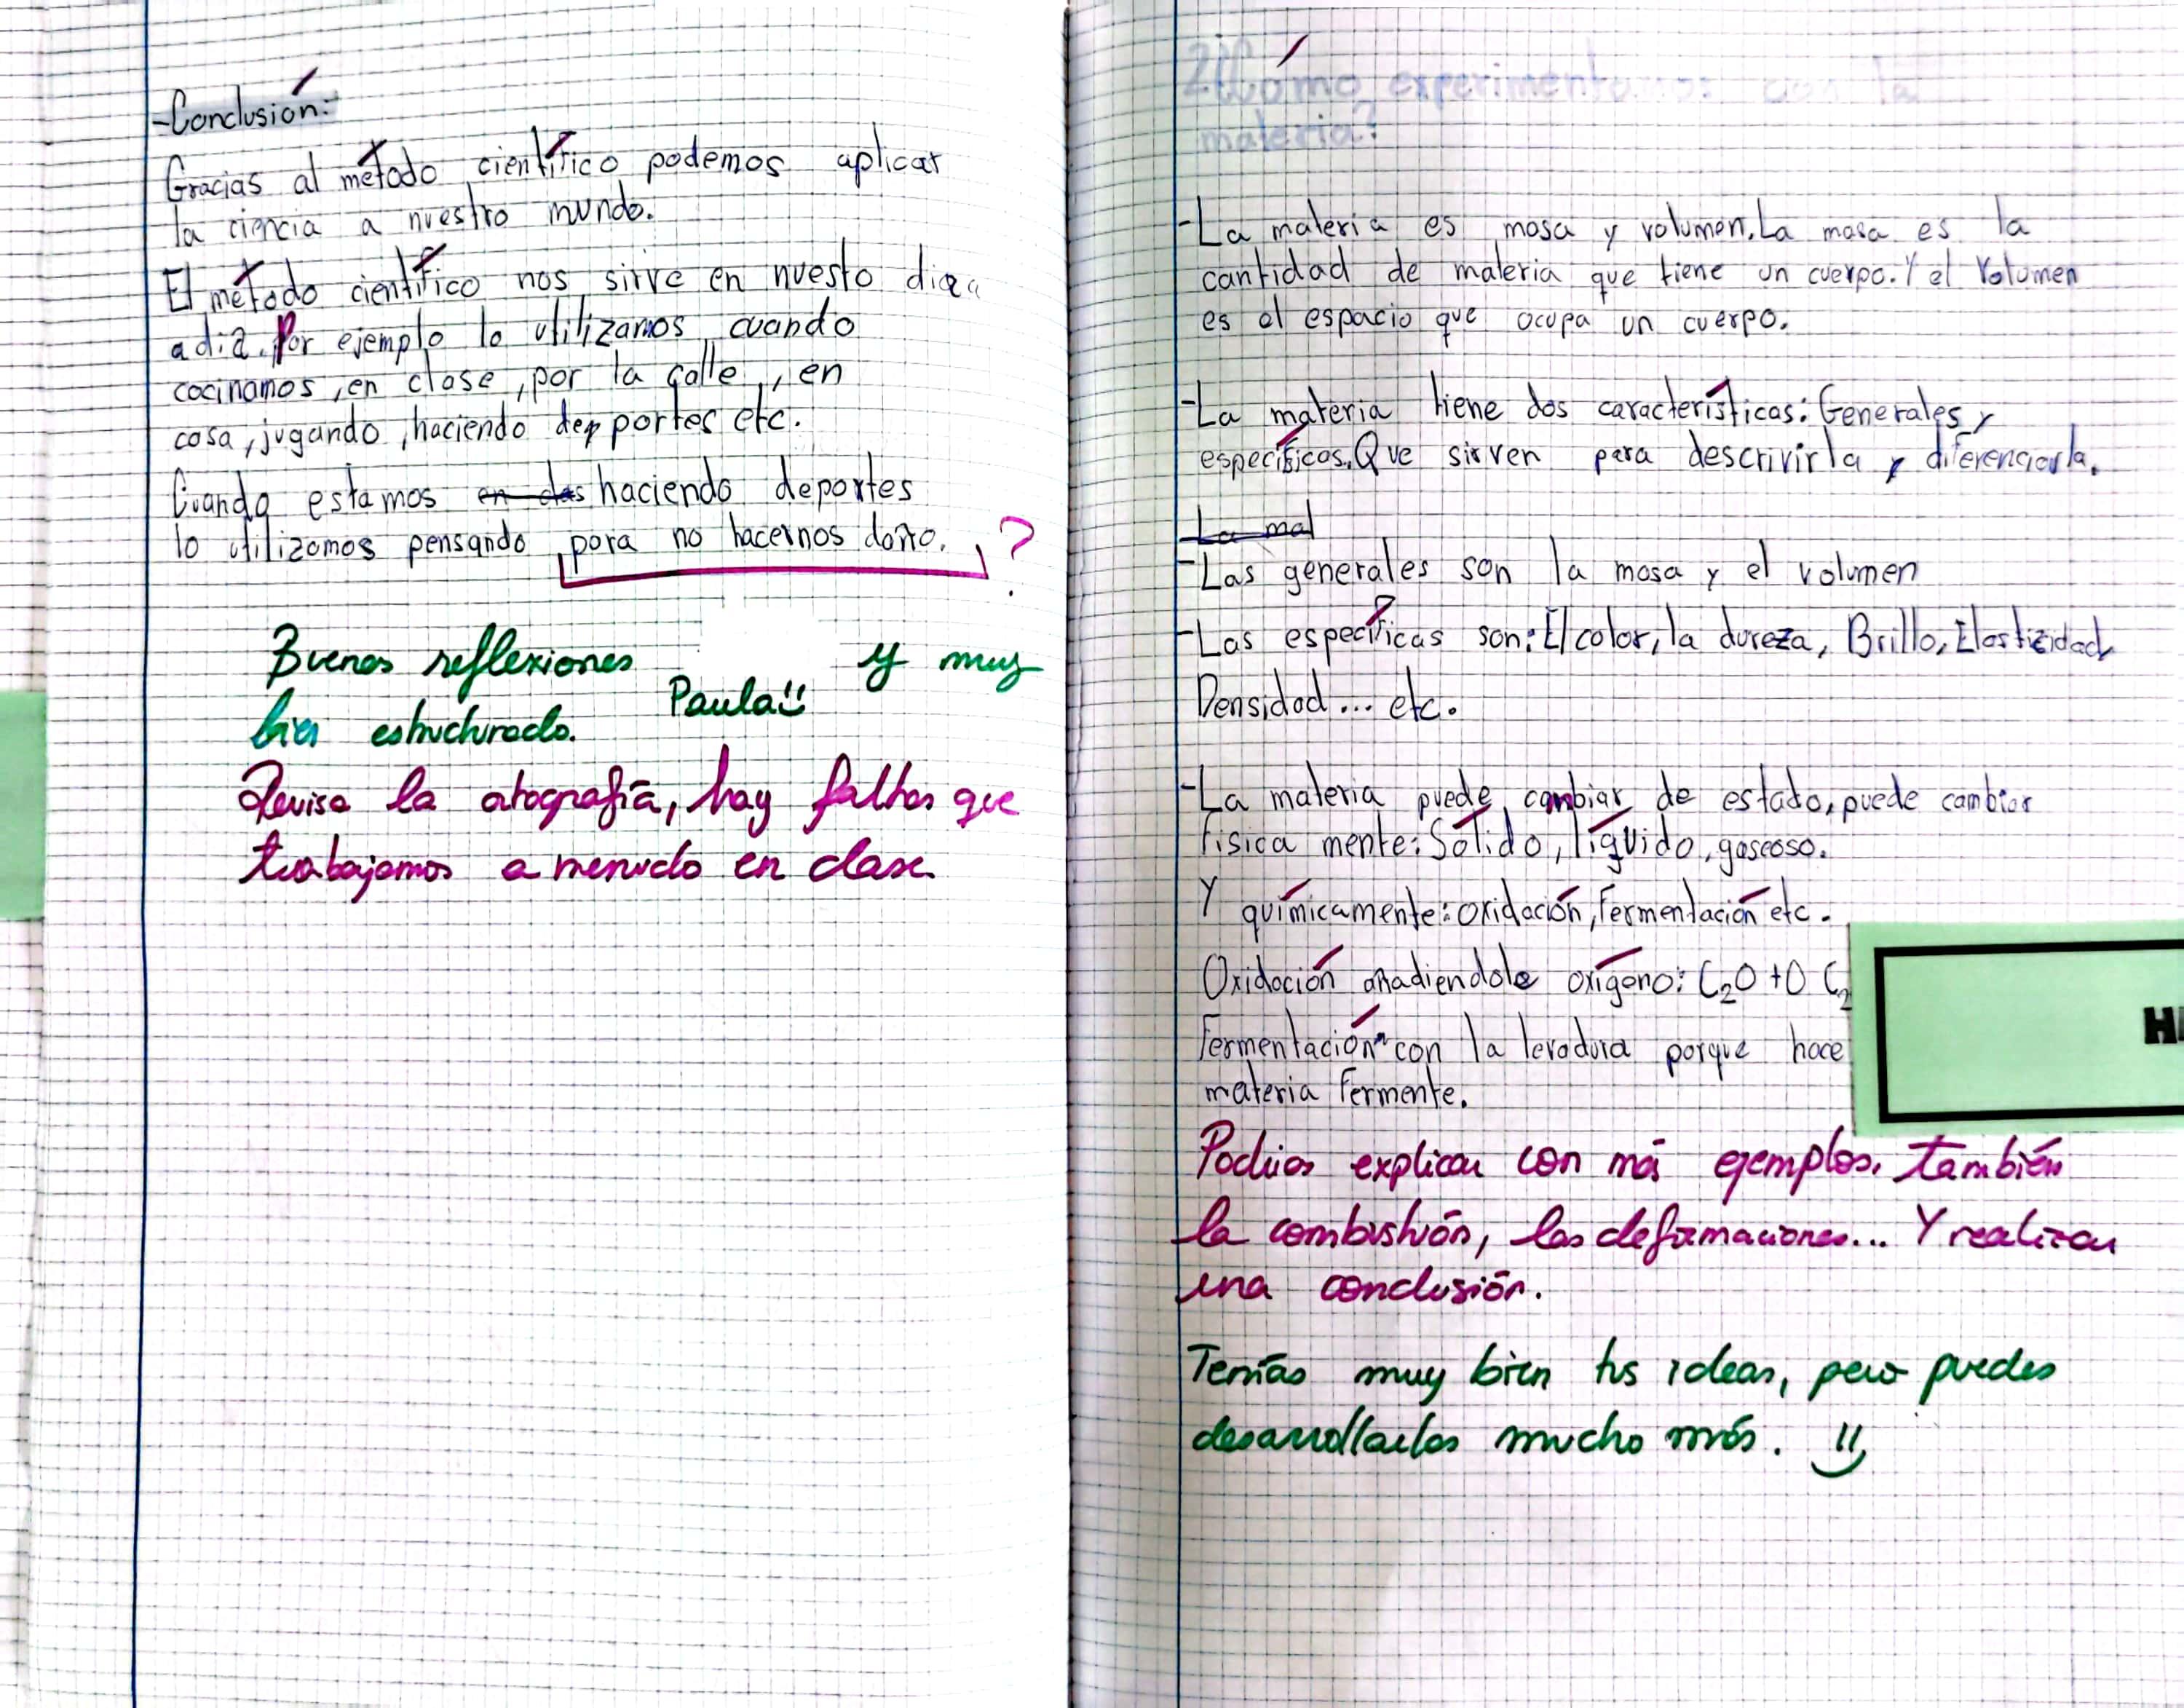 -Conclusión:
Gracias al método científico podemos aplicar
la ciencia a nuestro mundo.
El método científico nos sirve en nuesto dia
a dia. Por ejemplo lo utilizamos cuando
cocinamos, en clase, por la calle, en
casa, jugando, haciendo deportes etc.
Cuando estamos en haciendo deportes
lo utilizamos pensando para no hacernos daño. ?
Buenas reflexiones y muy
Paula
bien estructurado.
Revisa la ortografía, hay faltas que
trabajamos a menudo en clase.
2. ¿Cómo experimentamos con la
materia?
-La materia es masa y volumen. La masa es la
cantidad de materia que tiene un cuerpo. Y el Volumen
es el espacio que ocupa un cuerpo.
-La materia tiene dos características: Generales y
específicas. Que sirven para descrivirla y diferenciarla.
La mat
-Las generales son la masa y el volumen
-Las específicas son: El color, la dureza, Brillo, Elasticidad
Densidad... etc.
-La materia puede cambiar de estado, puede cambiar
física mente: Sólido, líquido, gaseoso.
Y químicamente: oxidación, Fermentación etc.
Oxidación añadiendole oxígeno: C₂O + O C₂
Fermentación con la levadura porque hace
materia fermente.
Podrías explicar con más ejemplos. También
la combustión, las deformaciones... Y realizar
una conclusión.
Tenías muy bien tus ideas, pero puedes
desarrollarlas mucho más.